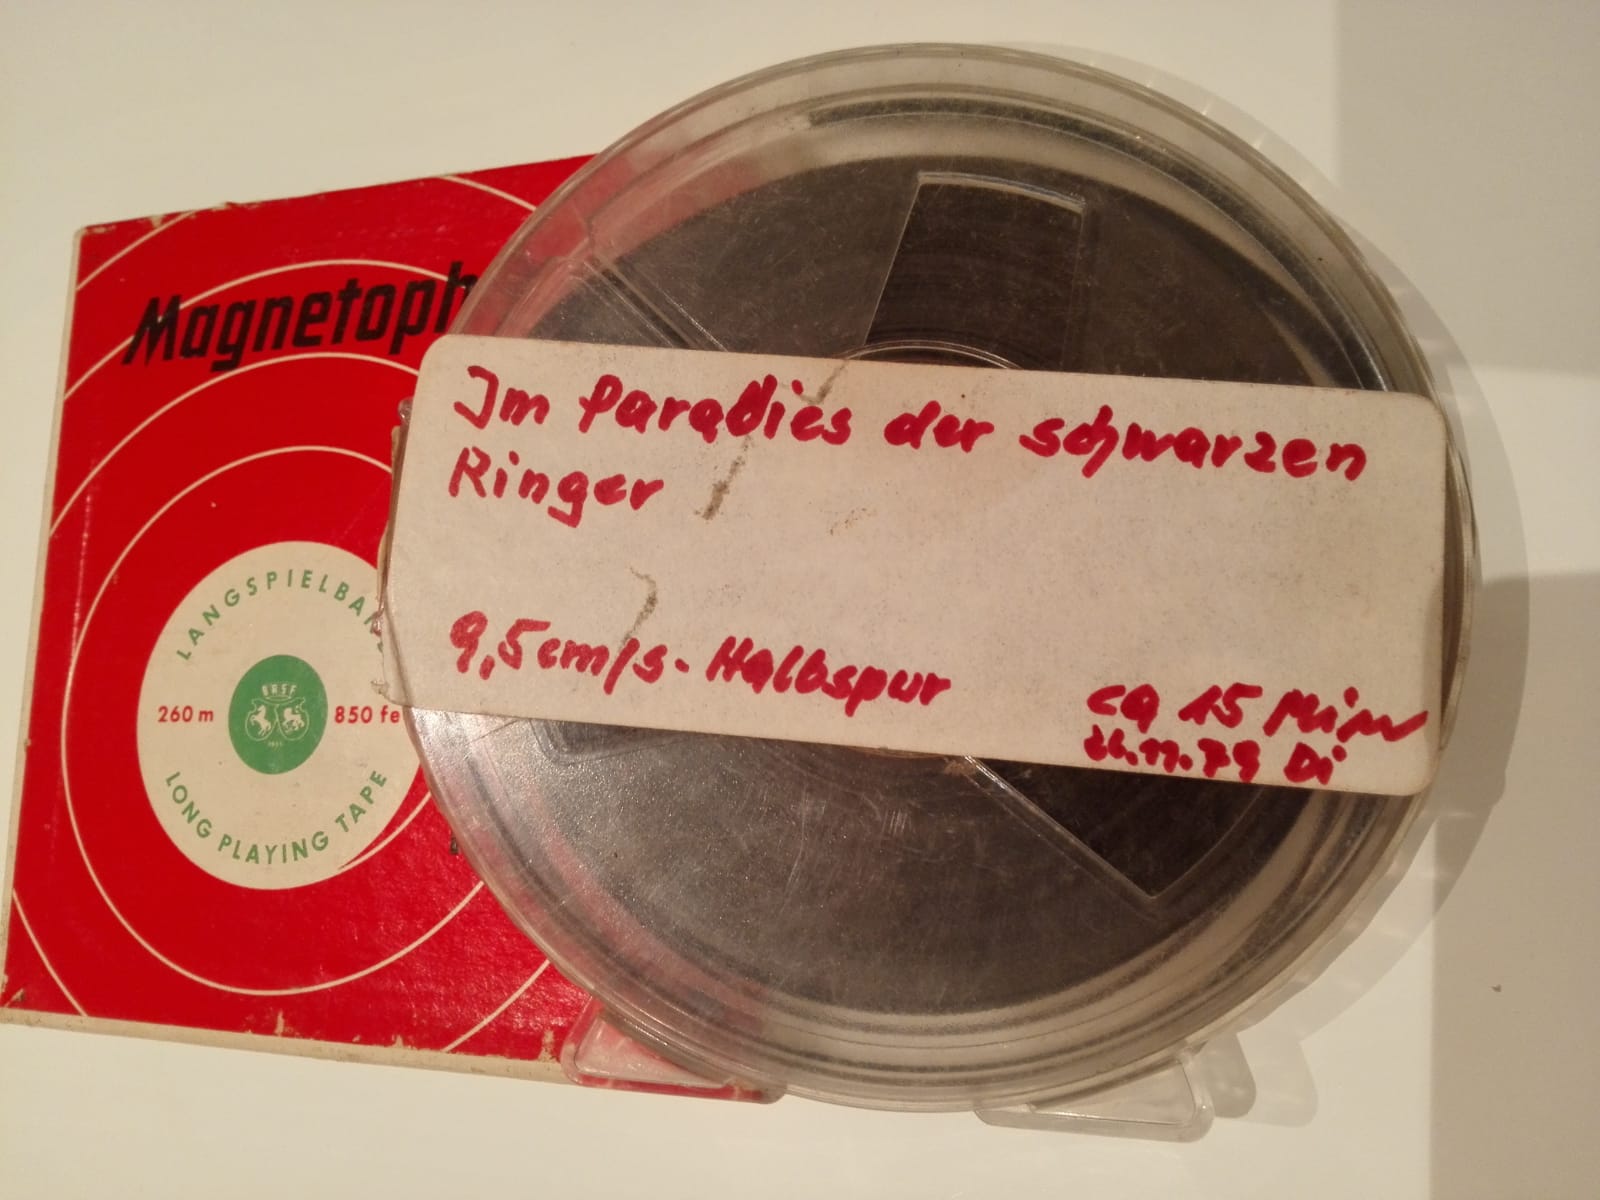 Magnetoph
LANGSPIELBAN
BASF
260 m
850 fe
LONG PLAYING TAPE
Im Paradies der schwarzen
Ringer
9,5cm/s - Halbspur
ca 15 Min
Di